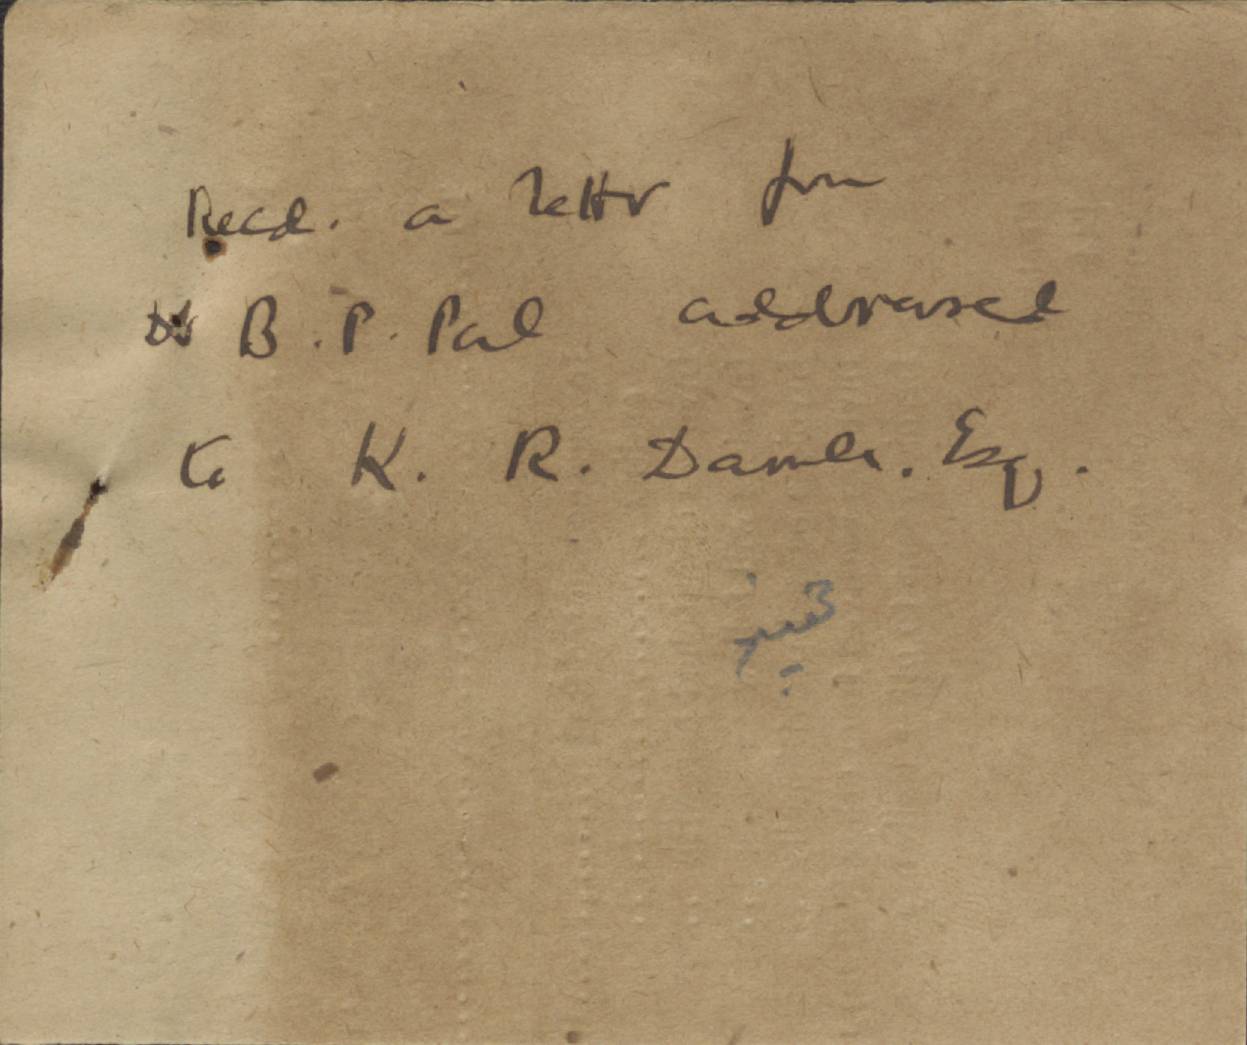 Recd. a letter from
Dr B. P. Pal addressed
to K. R. Damle. Esq.